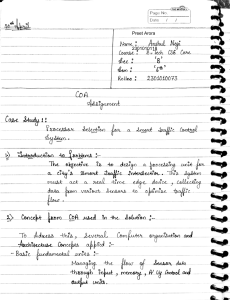 Page No.
Date
Preet Arora
Name :
Course : B-Tech CSE Core
Sec : 'B'
Sem :
Roll no : 2301010073
COA
Assignment
Case Study 1 :
Processor Selection for a Smart Traffic Control
System.
1) Introduction to Systems :-
The objective is to design a processing unit for
a city's Smart Traffic Intersection. This System
must act a real time edge device, collecting
data from various sensors to optimise traffic
flow.
2) Concept from COA used in the Solution :-
To address this, several Computer organisation and
Architecture Concepts applied :-
- Basic fundamental units :-
Managing the flow of Sensor data
through input, memory, ALU Control and
output units.